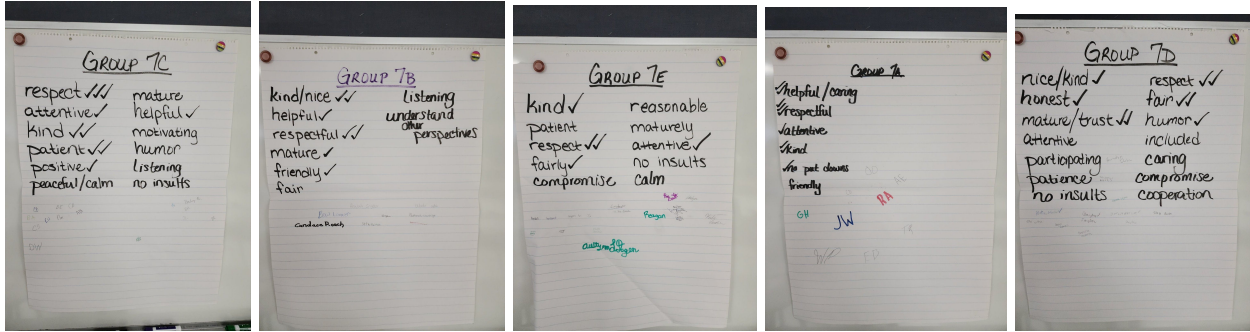 GROUP 7C
respect ✓✓✓
attentive ✓
kind ✓✓
patient ✓✓
positive ✓
peaceful/calm
mature
helpful ✓
motivating
humor
listening
no insults
GROUP 7B
kind/nice ✓✓
helpful ✓
respectful ✓✓
mature ✓
friendly ✓
fair
Listening
understand
other
perspectives
GROUP 7E
kind ✓
patient
respect ✓✓
fairly ✓
compromise
reasonable
maturely
attentive ✓
no insults
calm
Reagan
GROUP 7A
✓helpful/caring
✓respectful
✓attentive
✓kind
✓no put downs
friendly
GH
JW
RA
GROUP 7D
nice/kind ✓
honest ✓
mature/trust ✓✓
attentive
participating
patience
no insults
respect ✓✓
fair ✓✓
humor ✓
included
caring
compromise
cooperation